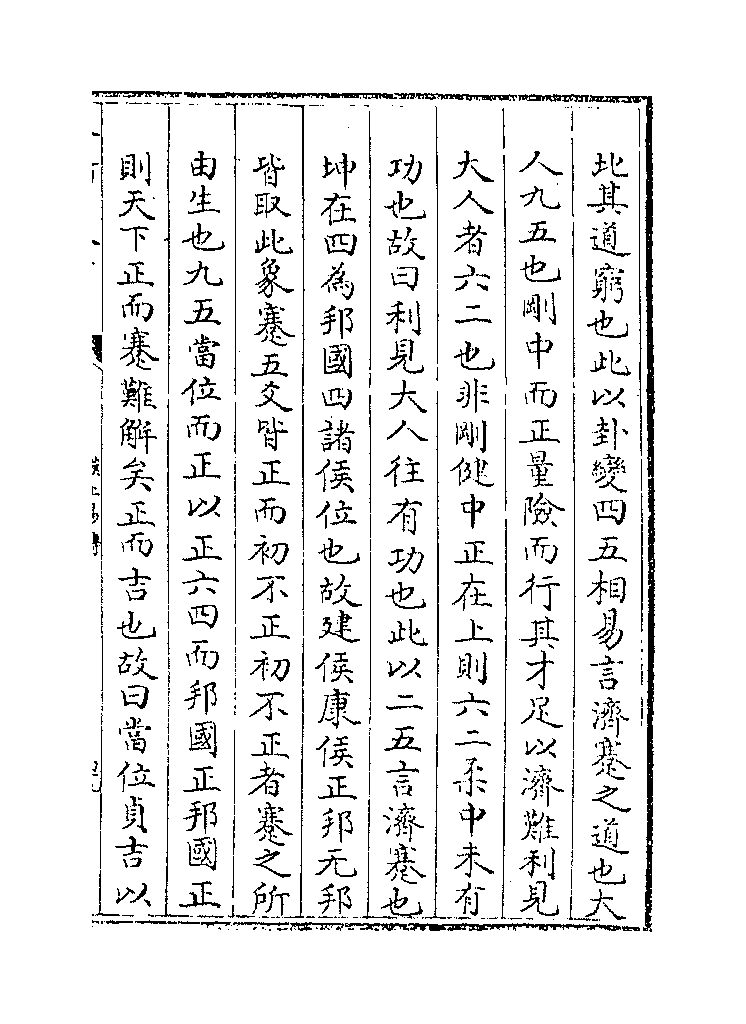 北其道窮也此以卦變四五相易言濟蹇之道也大
人九五也剛中而正量險而行其才足以濟難利見
大人者六二也非剛健中正在上則六二柔中未有
功也故曰利見大人往有功也此以二五言濟蹇也
坤在四為邦國四諸侯位也故建侯康侯正邦无邦
皆取此象蹇五爻皆正而初不正初不正者蹇之所
由生也九五當位而正以正六四而邦國正邦國正
則天下正而蹇難解矣正而吉也故曰當位貞吉以
漢上易傳